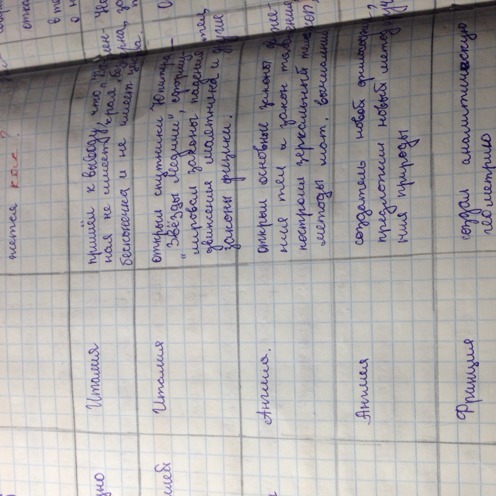 тется
но
Италия
пришёл к выводу, что
ная не имеет края
бесконечна и не имеет
Италия
открыл спутники Юпитер
"Звёзды Медичи" сформу-
лировал законы падения тел,
движения маятника и другие
законы физики.
Англия.
открыл основные законы движе-
ния тел и закон тяготения
построил зеркальный
методы мат. вычислений
Англия
создатель новой философии,
предложил новый метод изуче
ния природы
Франция
создал аналитическую
геометрию